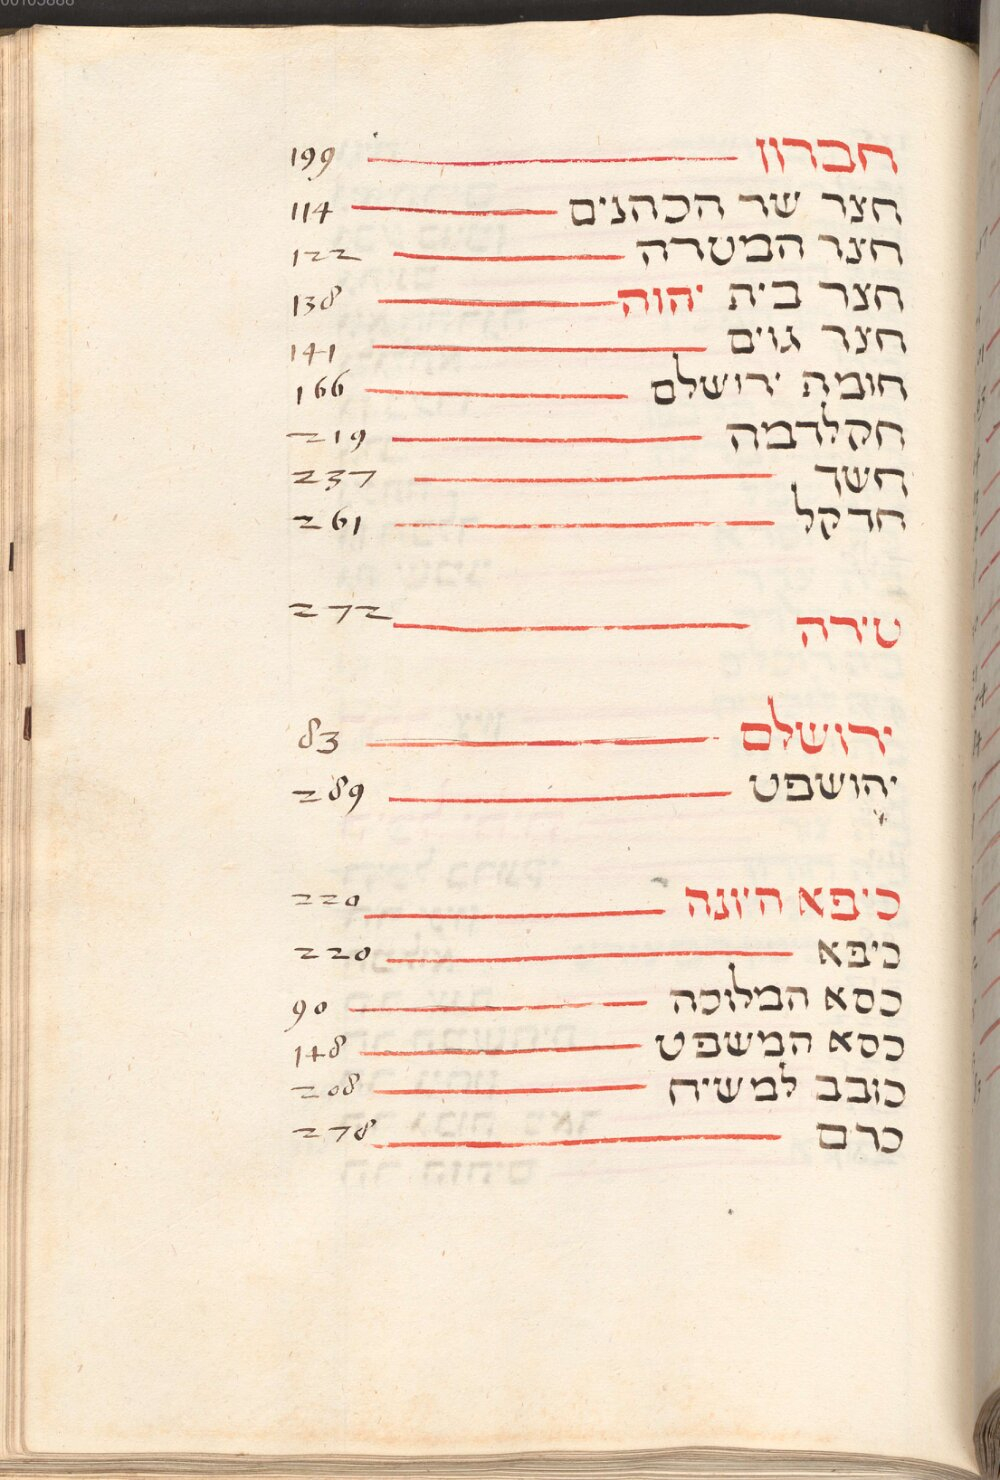 חברון 199
חצר שר הכהנים 114
חצר המטרה 122
חצר בית יהוה 138
חצר גוים 141
חומת ירושלם 166
חקלדמה 219
חשך 237
חדקל 261
טירה 272
ירושלם 83
יהושפט 289
כיפא היונה 220
כיפא 220
כסא המלוכה 90
כסא המשפט 148
כוכב למשיח 208
כרם 278